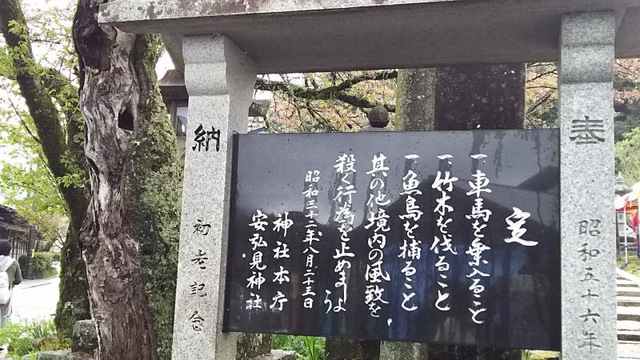 奉
納
定
一、車馬を乗入ること
一、竹木を伐ること
一、魚鳥を捕ること
其の他境内の風致を
殺く行為を止めましよう
昭和三十二年八月二十三日
神社本庁
安弘見神社
昭和五十六年
初老記念